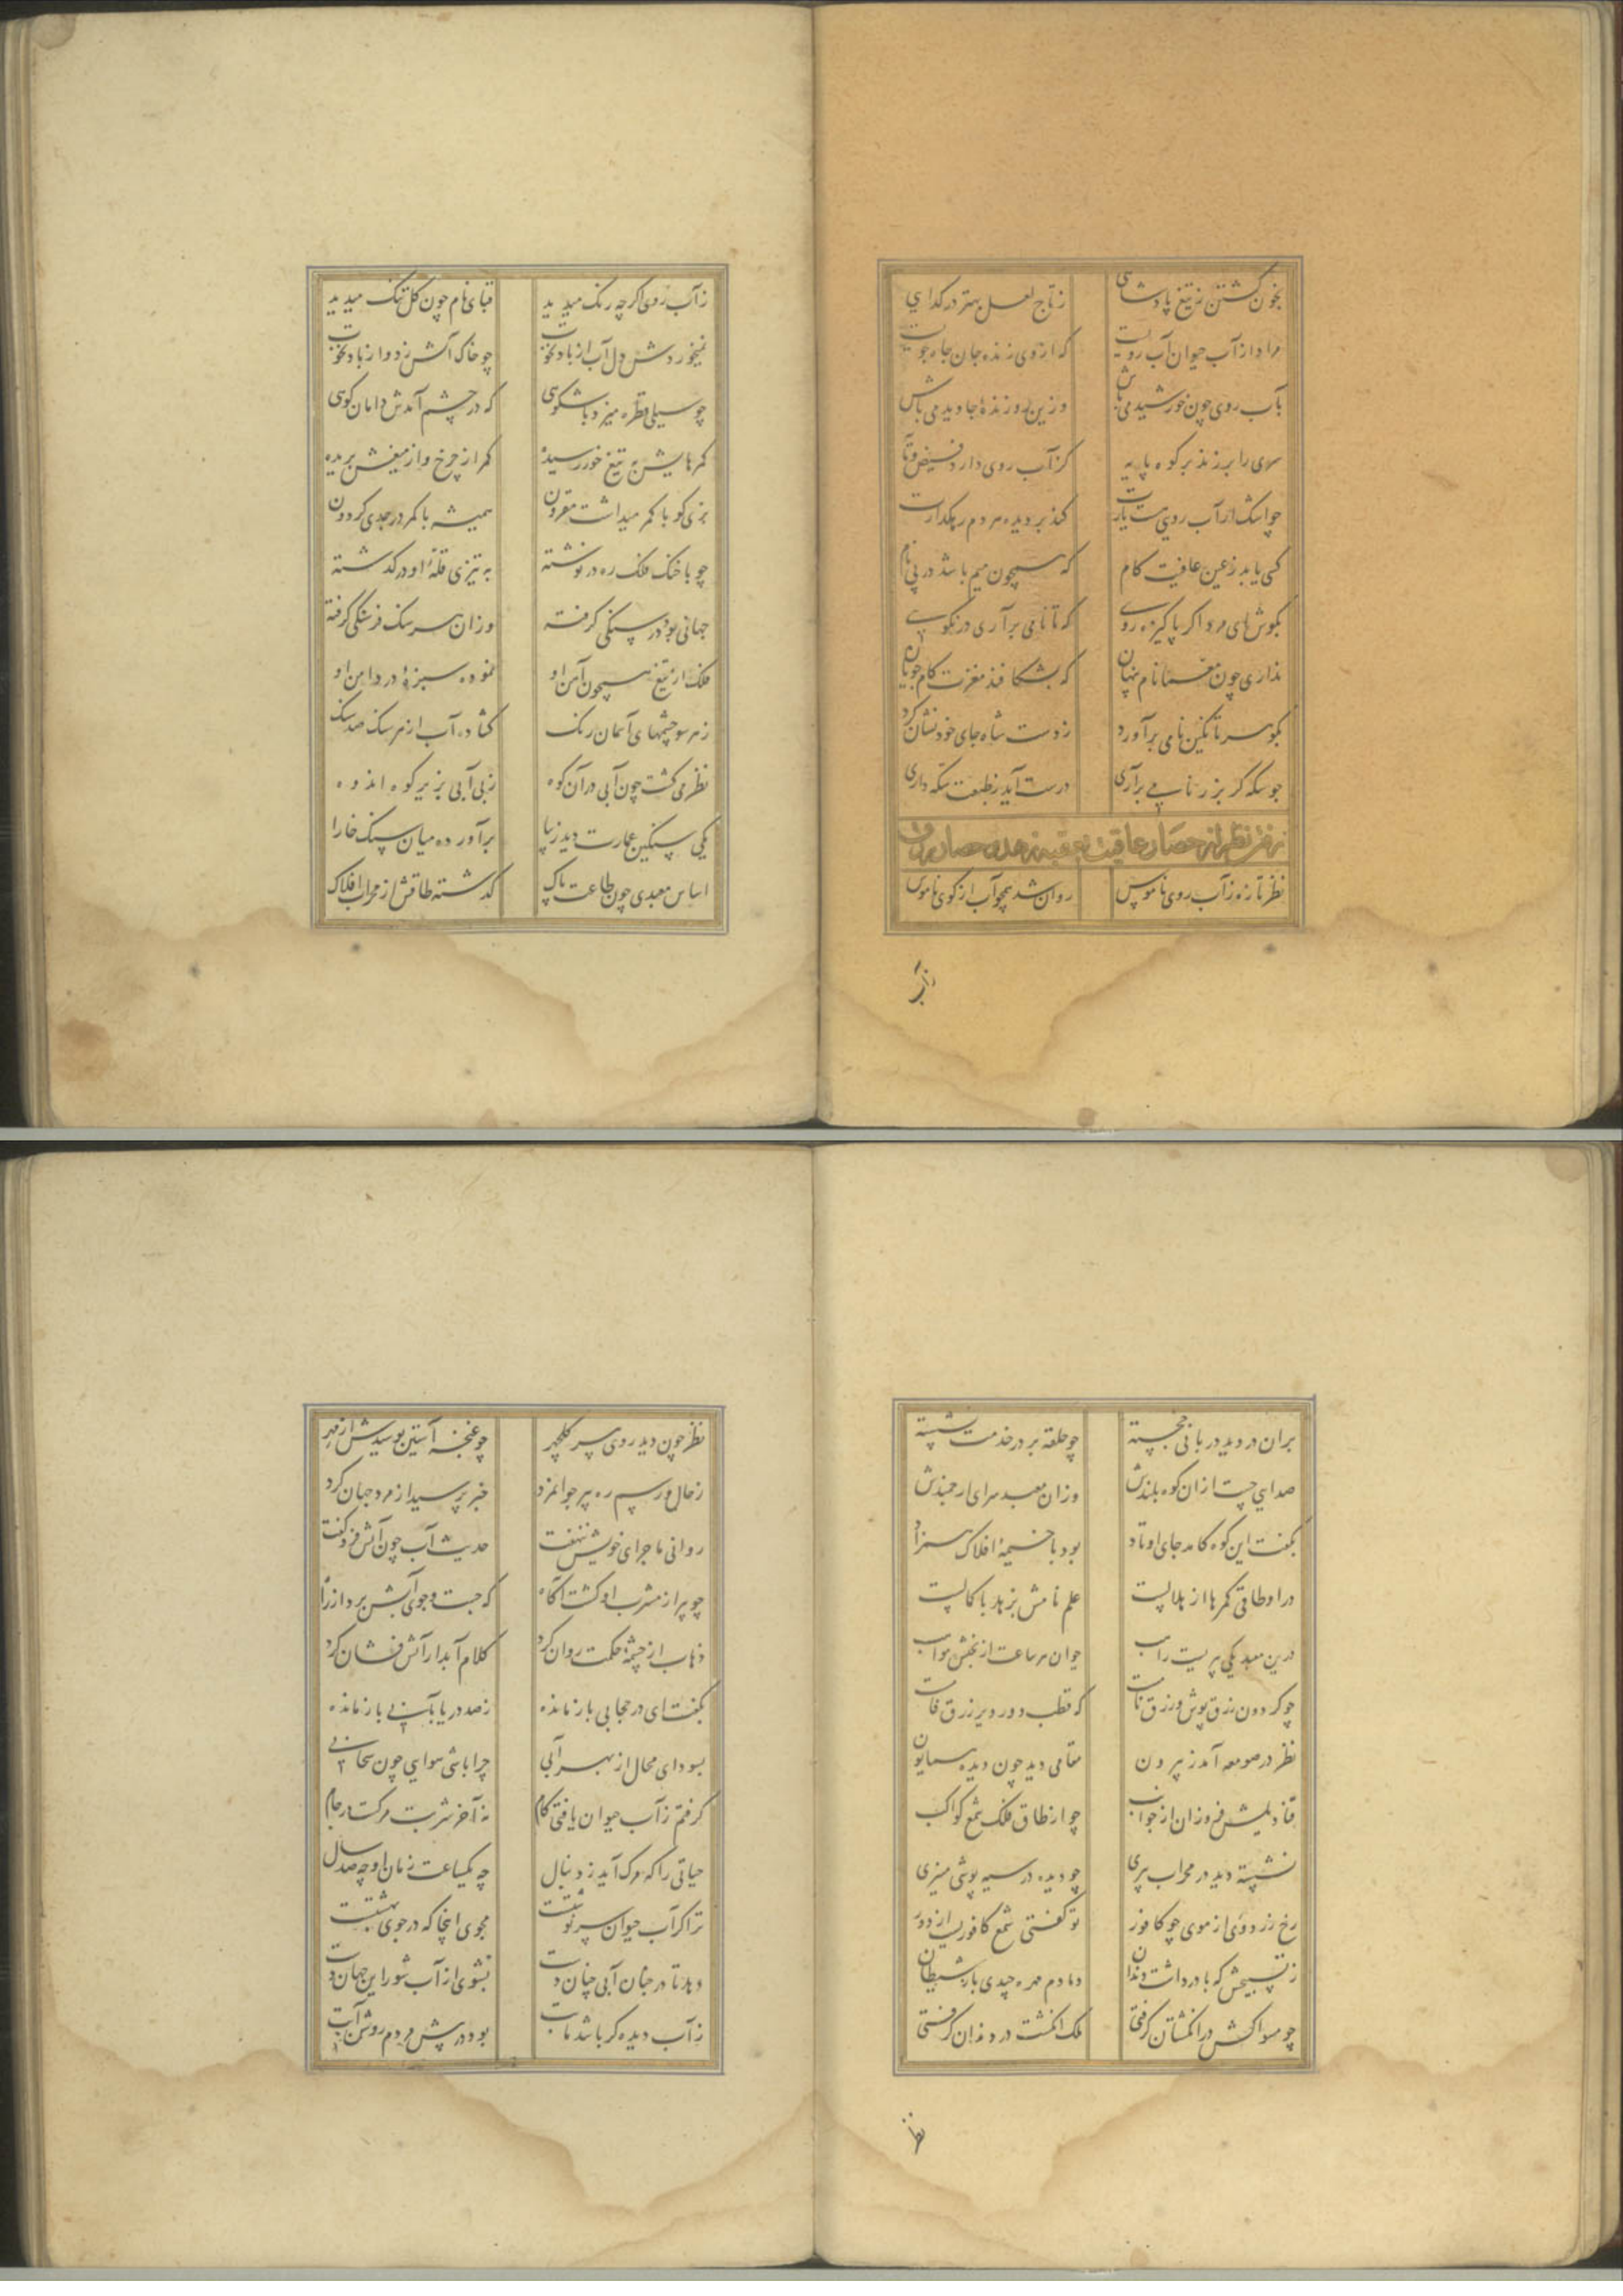 بخون کشتن ز تیغ پادشاهی ز تاج لعل بهتر در کدایی
مراد از آب حیوان آب رویست که از وی زنده جان جاه جویست
بآب روی چون خورشید می باش وزین رو زنده جاوید می باش
سری را بر زند بر کوه پایه کز آب روی دارد فیض
چو اشک ار آب روی هست یارت کند بر دیده مردم رهکذارت
کسی یابد ز عین عافیت کام که همچون میم باشد در پی نام
بکوش ای مرد اکر پاکیزه رویی که تا نامی برآری در نکویی
نداری چون نام پنهان که بشکافند مغزت کام جویان
بکو سر تا نکین نامی برآورد ز دست شاه جای خود نشان کرد
چو سکه کر بزر نامی برآری درست آید ز طبعت سکه داری
رفتن نظر از حصار عافیت
نظر تازه ز آب روی ناموس روان شد همچو آب از کوی ناموس
ز آب
ز آب روی اکر چه رنک میدید قبای نام چون کل تنک میدید
نمیخوردش دل آب از باد نخوت چو خاک آتش زد او از باد نخوت
چو سیلی قطره میزد باشکوهی که در چشم آمدش دامان کوهی
کمرهایش به تیغ خور رسیده کمر از چرخ و از میغش بریده
بزی کو با کمر میداشت مقرون همیشه با کمر در جدی کردون
چو با خنک فلک ره در نوشته به تیزی قلهٔ او در کذشته
جهانی بود در سنکی کرفته وزان هر سنک فرسنکی کرفته
فلک از تیغ همچون آهن او نموده سبزهٔ در دامن او
ز هر سو چشمهای آسمان رنک کشاده آب از هر سنک صد سنک
نظر می کشت چون آبی در آن کوه ز بی آبی بزیر کوه اندوه
یکی سنکین عمارت دید زیبا برآورده میان سنک خارا
اساس معبدی چون طاعت پاک کذشته طاقش از محراب افلاک
بران در دید دربانی خجسته چو حلقه بر در خدمت نشسته
صدایی جست ازان کوه بلندش وزان معبد سرای ارجمندش
بکفت این کوه کامد جای اوتاد بود با خیمهٔ افلاک همزاد
در او طاقی کمرها از هلالیست علم نامش بزهد با کمالیست
درین معبد یکی پریست راهب جوان هر ساعت از بخشش مواهب
چو کردون زرق پوش و زرق نامست که قطب دور دیر زرق فامست
نظر در صومعه آمد ز بیرون مقامی دید چون دیده همایون
قنادیلش فروزان از جوانب چو از طاق فلک شمع کواکب
نشسته دید در محراب پیری چو دیده در سیه پوشی منیری
رخ زردوی از موی چو کافور تو کفتی شمع کافوریست از دور
ز تسبیحش که با در داشت دندان دمادم مهره چیدی بار شیطان
چو مسواکش در انکشتان کرفتی ملک انکشت در دندان کرفتی
نظر
نظر چون دید روی پیر کلچهر چو غنچه آستین بوسیدش از مهر
ز حال و رسم ره پیر جوانمرد خبر پرسید از مرد جهان کرد
روانی ماجرای خویش ننهفت حدیث آب چون آتش فرو کفت
چو پیر از مشرب او کشت آکاه که جست و جوی آبش برد از راه
ذهاب از چشمهٔ حکمت روان کرد کلام آبدار آتش فشان کرد
بکفت ای در حجابی باز مانده ز صد دریا بآبی باز مانده
بسودای محال از بهر آبی چرا باشی هوایی چون سحابی
کرفتم ز آب حیوان یافتی کام نه آخر شربت مرکست در جام
حیاتی را که مرک آید ز دنبال چه یکساعت زمان او چه صد سال
ترا کر آب حیوان سرنوشتست مجوی اینجا که در جوی بهشتست
دهد تا در جنان آبی چنان دست بشوی از آب شور این جهان دست
ز آب دیده کر باشد مابت بود در پیش مردم روشن آبت